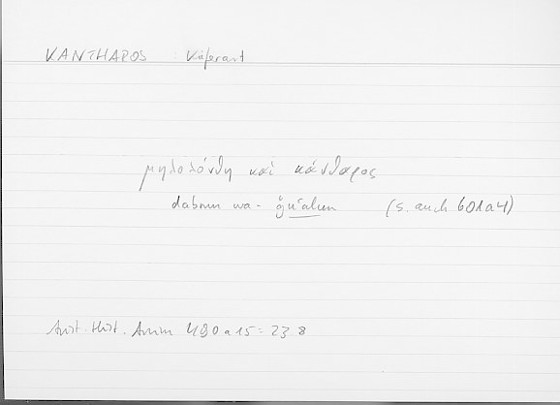 KANTHAROS : Käferart
μηλολόνθη καὶ κάνθαρος
dabrun wa- ǧuʿalun (s. auch 601a4)
Arist. Hist. Anim 490a15 : 23 8